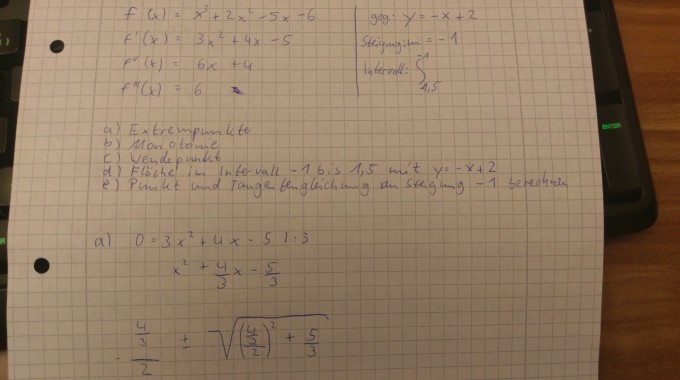 f (x) = x³ + 2x² - 5x - 6
f'(x) = 3x² + 4x - 5
f''(x) = 6x + 4
f'''(x) = 6
geg: y = -x + 2
Steigung: m = -1
Intervall: ∫ -1 1,5
a) Extrempunkte
b) Monotonie
c) Wendepunkt
d) Fläche im Intervall -1 bis 1,5 mit y = -x + 2
e) Punkt und Tangentengleichung an Steigung -1 berechnen
a) 0 = 3x² + 4x - 5 | : 3
x² + 4/3 x - 5/3
- 4/3 / 2 ± √((4/3 / 2)² + 5/3)
ENTER